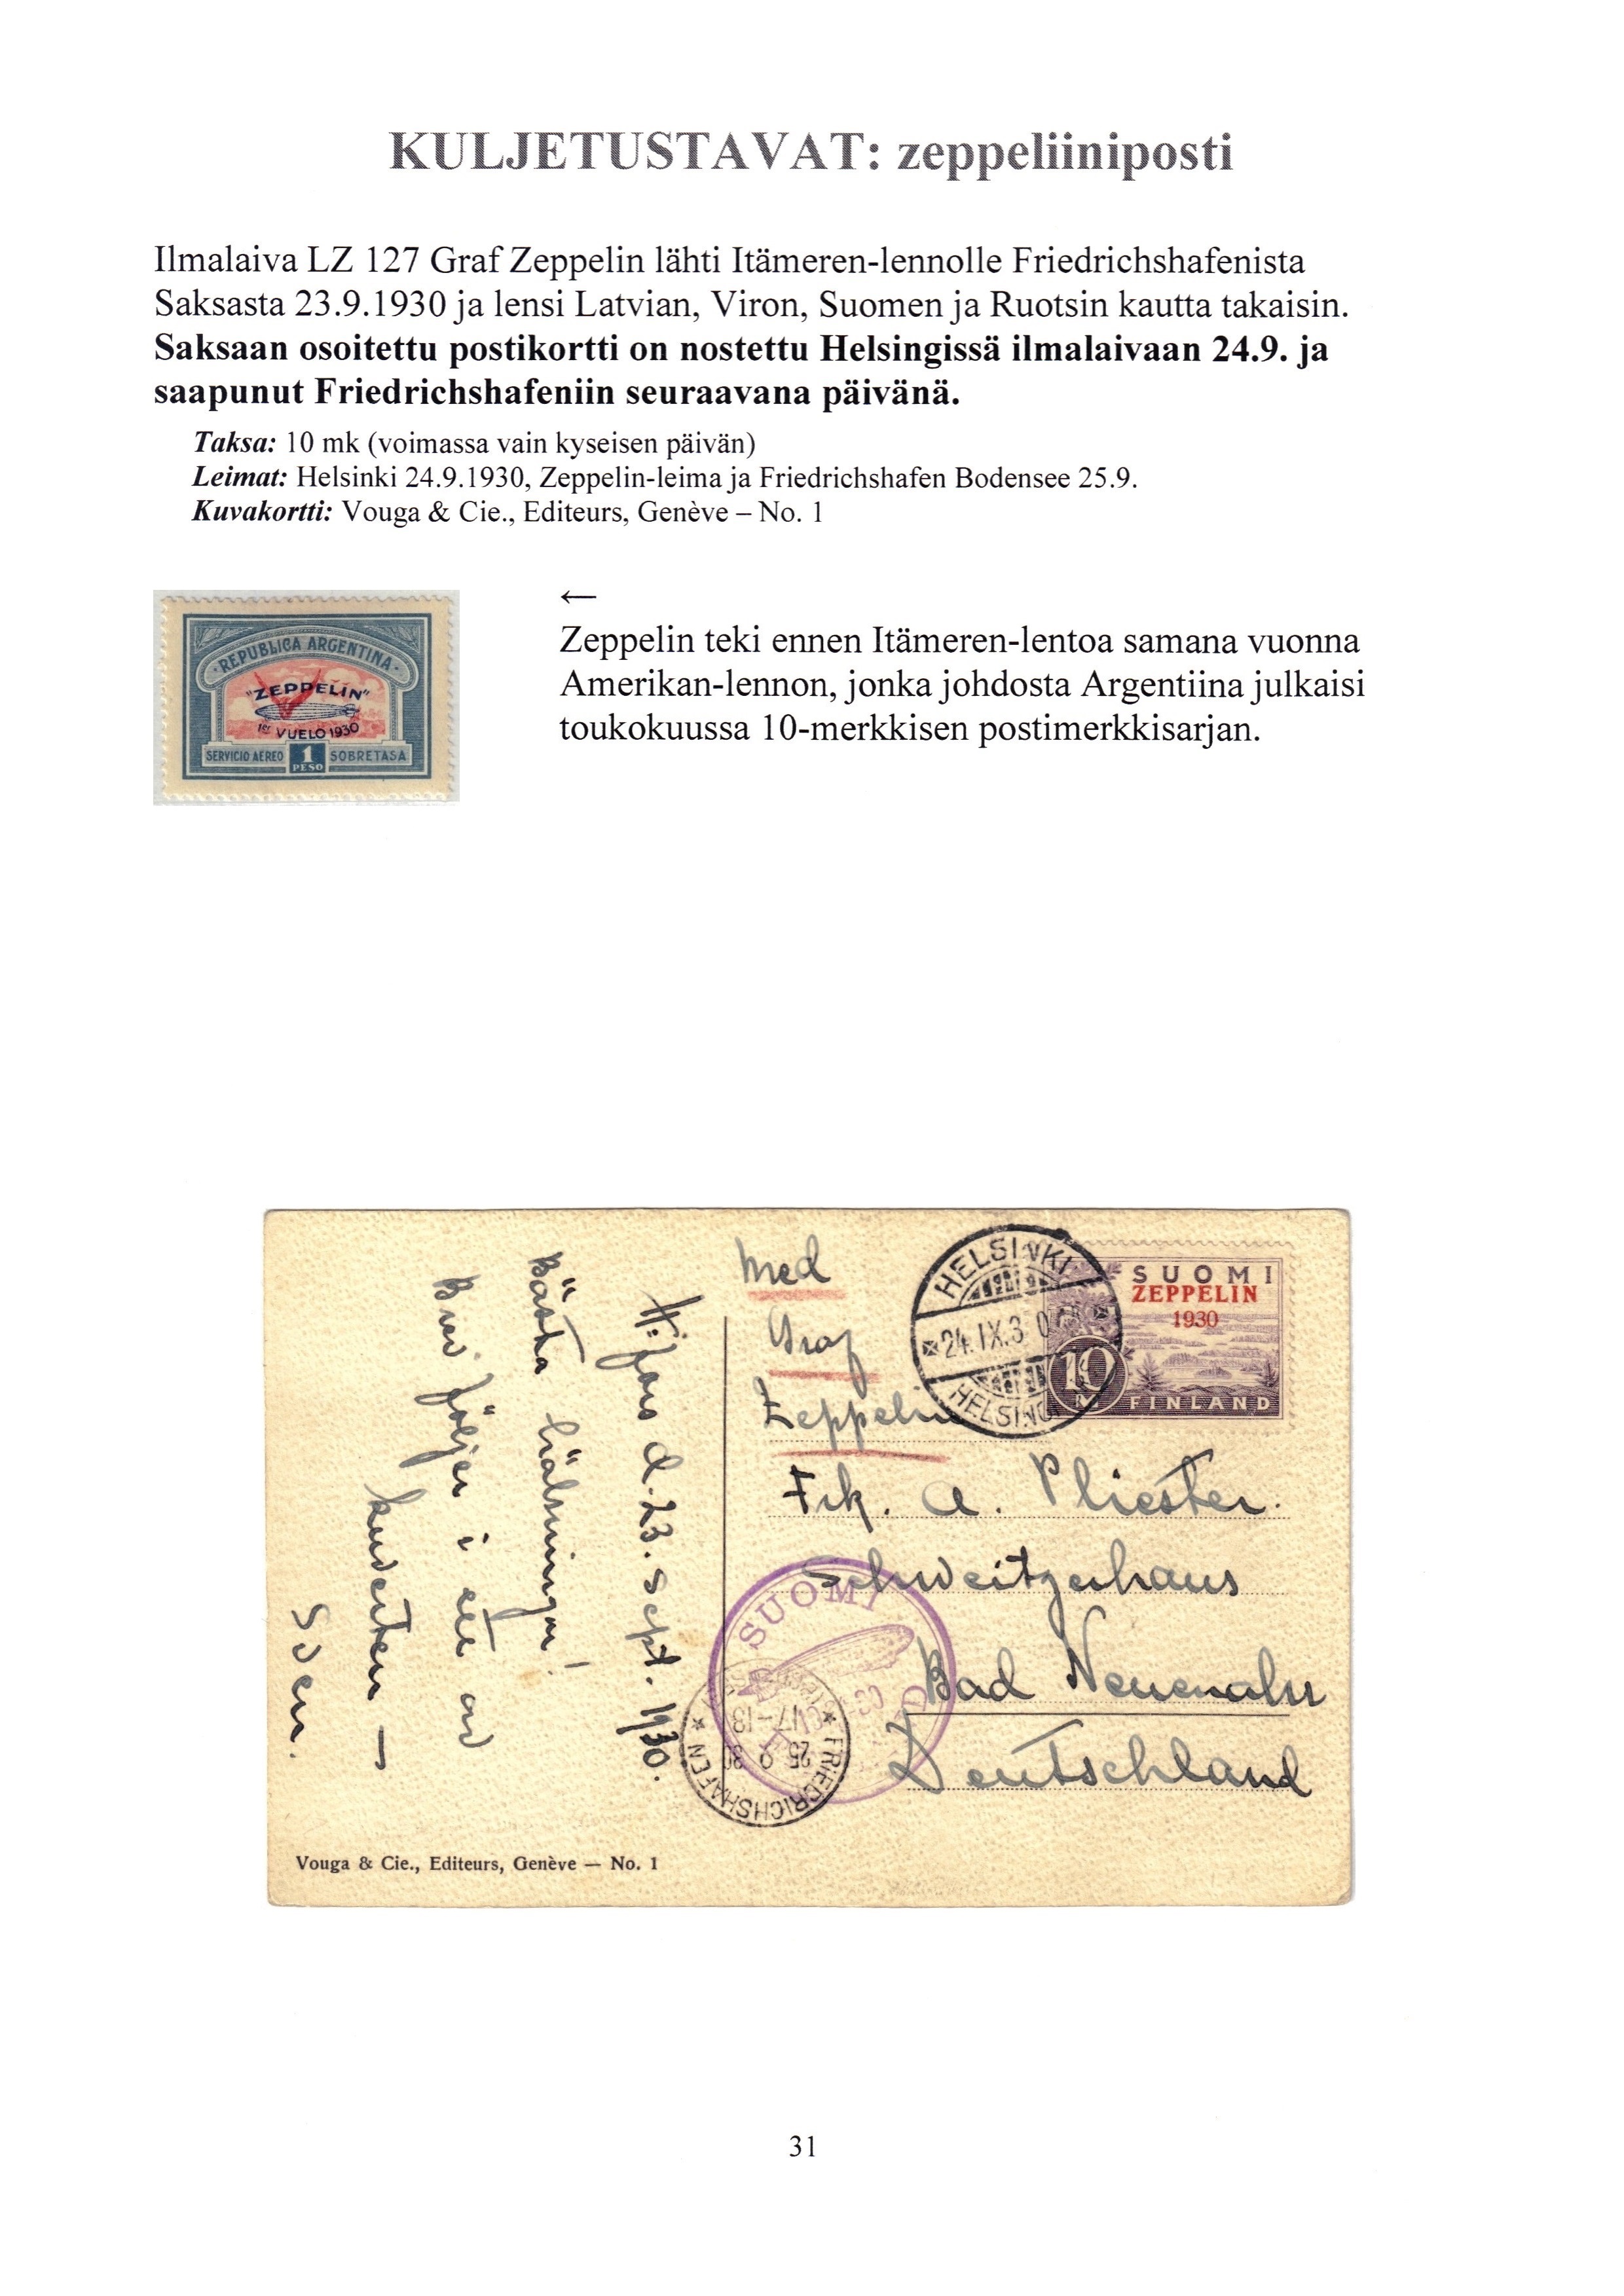 KULJETUSTAVAT: zeppeliiniposti
Ilmalaiva LZ 127 Graf Zeppelin lähti Itämeren-lennolle Friedrichshafenista
Saksasta 23.9.1930 ja lensi Latvian, Viron, Suomen ja Ruotsin kautta takaisin.
Saksaan osoitettu postikortti on nostettu Helsingissä ilmalaivaan 24.9. ja
saapunut Friedrichshafeniin seuraavana päivänä.
Taksa: 10 mk (voimassa vain kyseisen päivän)
Leimat: Helsinki 24.9.1930, Zeppelin-leima ja Friedrichshafen Bodensee 25.9.
Kuvakortti: Vouga & Cie., Editeurs, Genève – No. 1
REPUBLICA ARGENTINA
"ZEPPELIN"
1er VUELO 1930
SERVICIO AEREO 1 PESO SOBRETASA
←
Zeppelin teki ennen Itämeren-lentoa samana vuonna
Amerikan-lennon, jonka johdosta Argentiina julkaisi
toukokuussa 10-merkkisen postimerkkisarjan.
H:fors d. 23. sept. 1930.
Bästa hälsningar!
Brev följer i ett av
Sven.
Med
Graf
Zeppelin
HELSINKI
24.IX.30
HELSING
SUOMI
ZEPPELIN
1930
10
FINLAND
Frk. A. Pliester.
Schweitzerhaus
Bad Neuenahr
Deutschland
SUOMI
FRIEDRICHSHAFEN
25 9 30
17-18
Vouga & Cie., Editeurs, Genève — No. 1
31